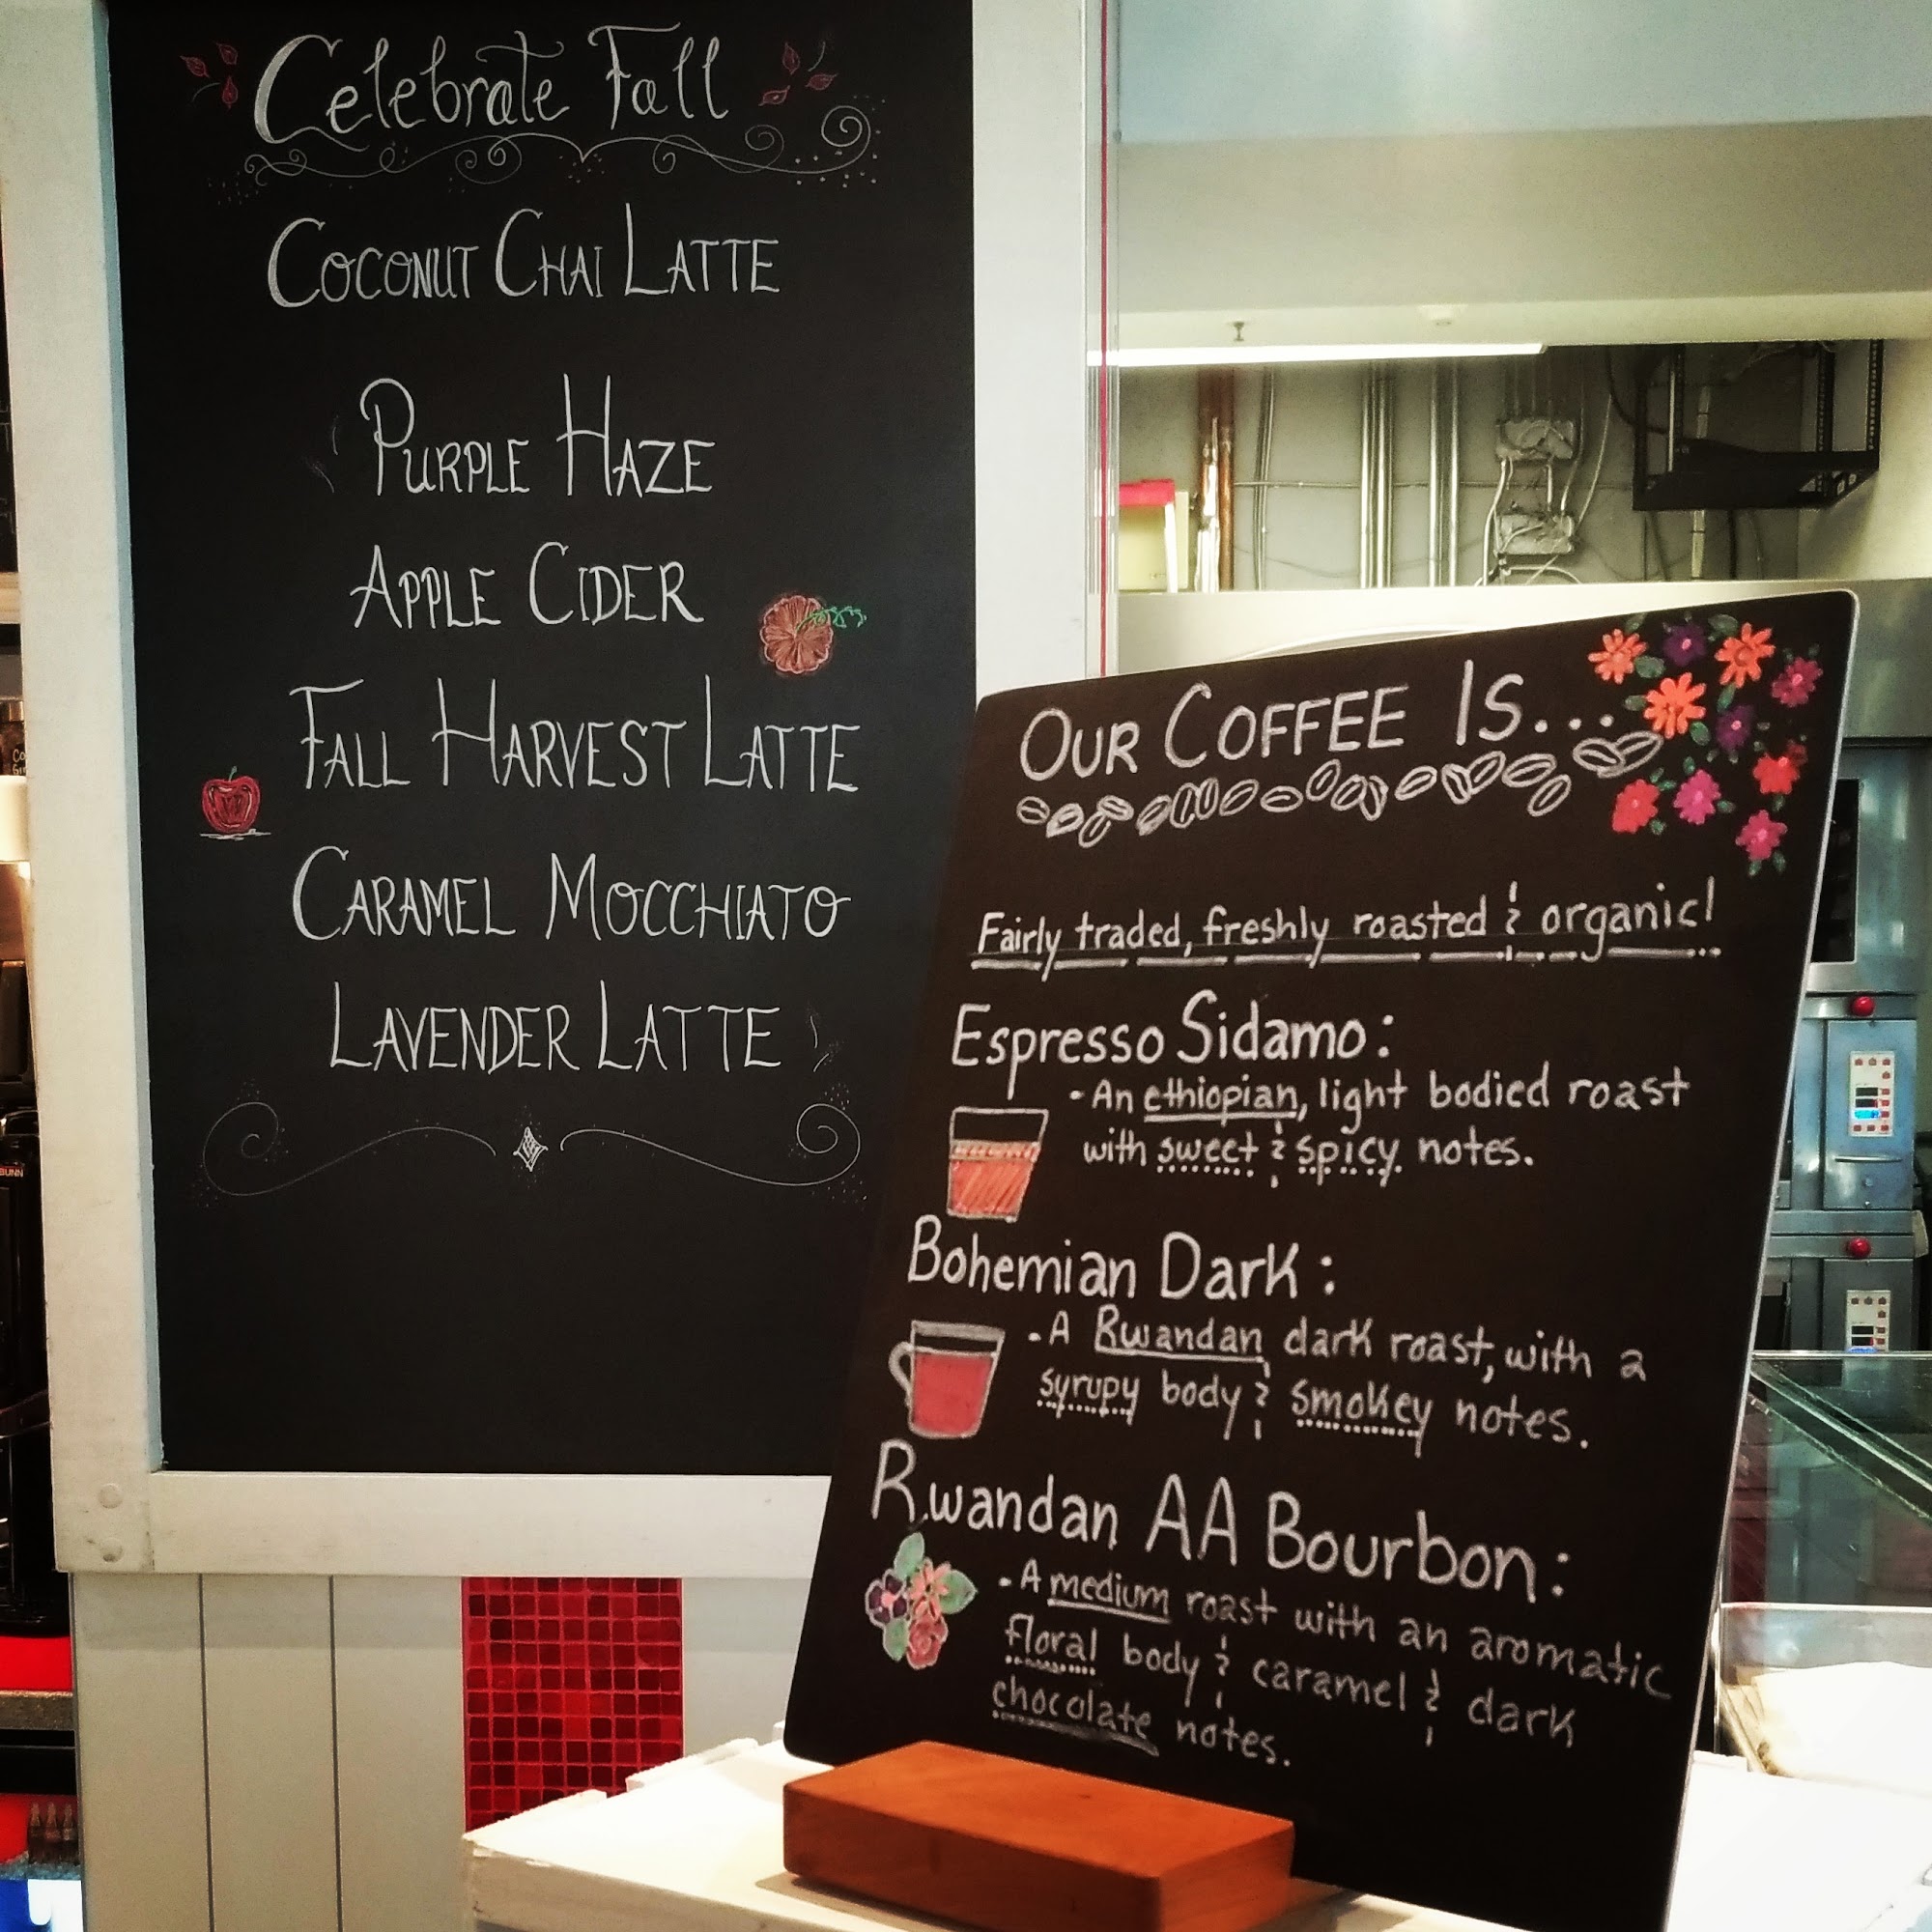 Celebrate Fall
COCONUT CHAI LATTE
PURPLE HAZE
APPLE CIDER
FALL HARVEST LATTE
CARAMEL MOCCHIATO
LAVENDER LATTE
OUR COFFEE IS...
Fairly traded, freshly roasted & organic!
Espresso Sidamo:
- An ethiopian, light bodied roast
with sweet & spicy notes.
Bohemian Dark:
- A Rwandan dark roast, with a
syrupy body & smokey notes.
Rwandan AA Bourbon:
- A medium roast with an aromatic
floral body & caramel & dark
chocolate notes.
BUNN